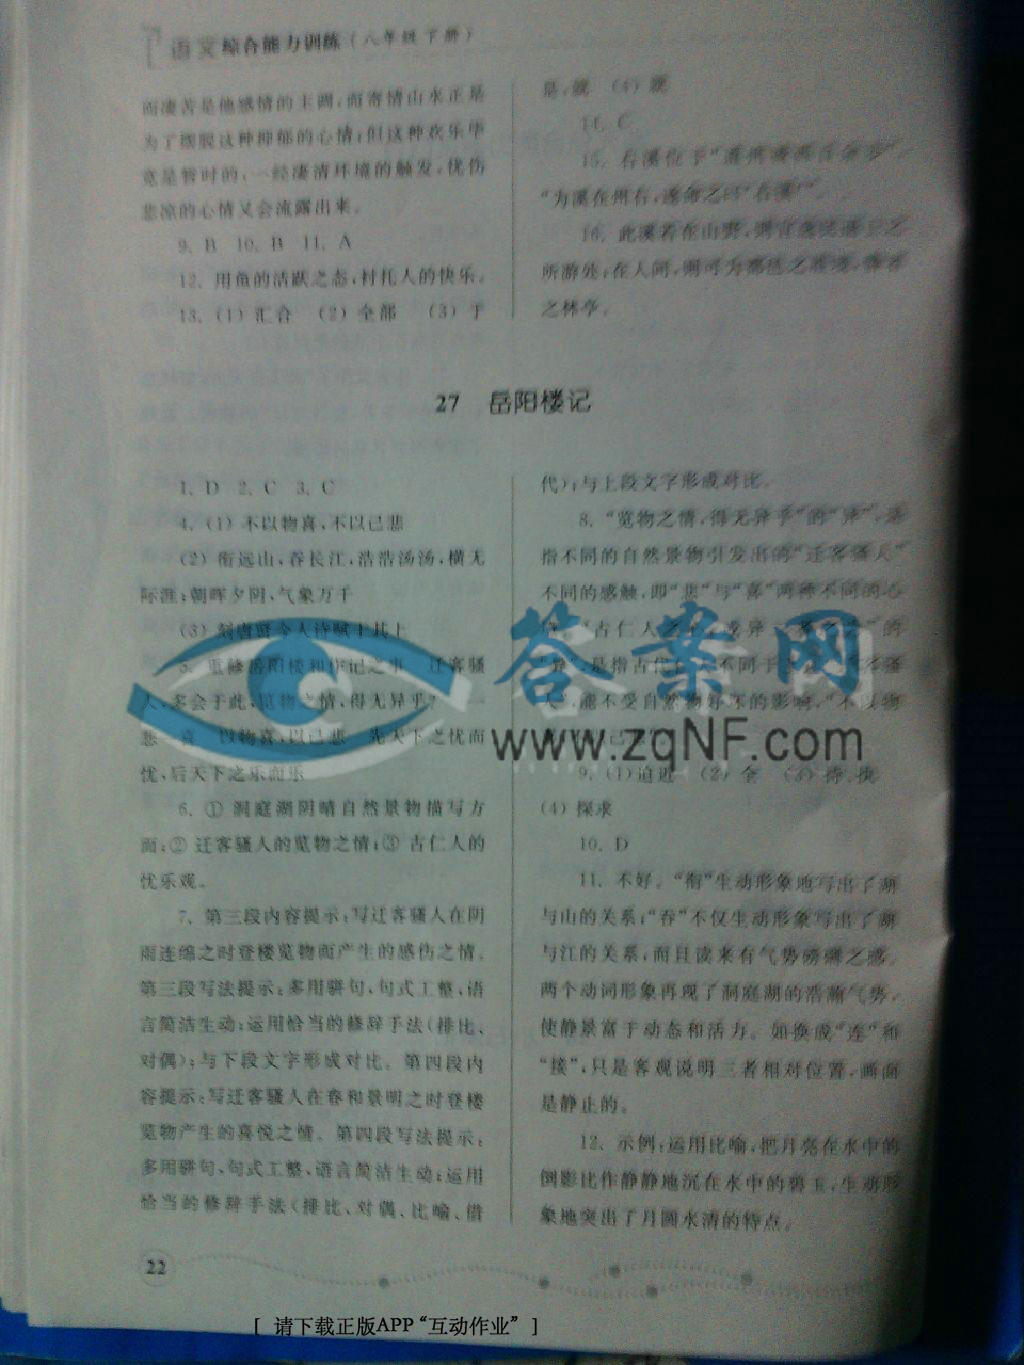 语文综合能力训练(八年级下册)
而凄苦是他感情的主调,而寄情山水正是
为了摆脱这种抑郁的心情;但这种欢乐毕
竟是暂时的,一经凄清环境的触发,忧伤
悲凉的心情又会流露出来。
9. B 10. B 11. A
12. 用鱼的活跃之态,衬托人的快乐。
13. (1) 汇合 (2) 全部 (3) 于
是,就
14. C
15. 右溪位于
“为溪在州右,遂命之曰“右溪””。
16. 此溪若在山野,则宜
所游处;在人间,则可为都邑之胜境,静者
之林亭。
27 岳阳楼记
1. D 2. C 3. C
4. (1) 不以物喜,不以己悲
(2) 衔远山,吞长江,浩浩汤汤,横无
际涯;朝晖夕阴,气象万千
(3) 刻唐贤今人诗赋于其上
5. 重修岳阳楼和作记之事 迁客骚
人,多会于此,览物之情,得无异乎? 一
悲一喜 以物喜,以己悲 先天下之忧而
忧,后天下之乐而乐
6. ① 洞庭湖阴晴自然景物描写方
面;② 迁客骚人的览物之情;③ 古仁人的
忧乐观。
7. 第三段内容提示:写迁客骚人在阴
雨连绵之时登楼览物而产生的感伤之情。
第三段写法提示:多用骈句,句式工整,语
言简洁生动;运用恰当的修辞手法(排比、
对偶);与下段文字形成对比。第四段内
容提示:写迁客骚人在春和景明之时登楼
览物产生的喜悦之情。第四段写法提示:
多用骈句,句式工整,语言简洁生动;运用
恰当的修辞手法(排比、对偶、比喻、借
代);与上段文字形成对比。
8. “览物之情,得无异乎”的“异”,是
指不同的自然景物引发出的“迁客骚人”
不同的感触,即“悲”与“喜”两种不同的心
情。“古仁人之心,或异二者之为”的
“异”,是指古代仁人不同于迁客骚
人”,能不受自然物好坏的影响,“不以物
9. (1) 迫近 (2) 全 (3)
(4) 探求
10. D
11. 不好。“衔”生动形象地写出了湖
与山的关系;“吞”不仅生动形象写出了湖
与江的关系,而且读来有气势磅礴之感。
两个动词形象再现了洞庭湖的浩瀚气势,
使静景富于动态和活力。如换成“连”和
“接”,只是客观说明三者相对位置,画面
是静止的。
12. 示例:运用比喻,把月亮在水中的
倒影比作静静地沉在水中的碧玉,生动形
象地突出了月圆水清的特点。
答案网
www.zqNF.com
22
[ 请下载正版APP“互动作业” ]